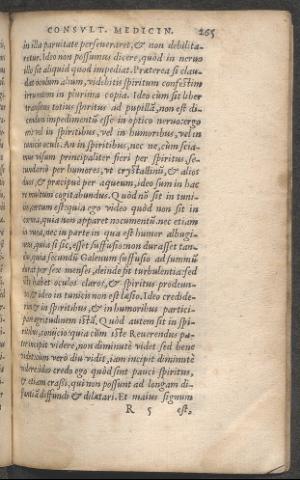 CONSVLT. MEDICIN. 265
in illa paruitate perseueraret, & non debilita-
retur. Ideo non possumus dicere, quòd in neruo
illo sit aliquid quod impediat. Præterea si clau-
dat oculum alium, videbitis spiritum confestim
irruentem in plurima copia. Ideo cùm sit liber
transitus totius spiritus ad pupillã, non est di-
cendum impedimentũ esse in optico neruo: ergo
erit vel in spiritibus, vel in humoribus, vel in
tunicis oculi. An in spiritibus, nec ne, cùm scia-
mus visum principaliter fieri per spiritus, se-
cundariò per humores, vt crystallinũ, & alios
duos, & præcipuè per aqueum, ideo sum in hac
re multum cogitabundus. Quòd nõ sit in tuni-
certum est: quia ego video quòd non sit in
cornea, quia non apparet nocumentũ. nec etiam
in vuea, nec in parte in qua est humor albugi-
neus, quia si sic, esset suffusio: non durasset tan-
tum, quia secundũ Galenum suffusio ad summũ
durat per sex menses, deinde fit turbulentia: sed
iste habet oculos claros, & spiritus prodeun-
tes, & ideo in tunicis non est læsio. Ideo credide-
rim & in spiritibus, & in humoribus partici-
pari ægritudinem istã. Quòd autem sit in spi-
ritibus, conijcio: quia cùm iste Reuerendus pa-
ter incipit videre, non diminutè videt sed bene
vbi autem verò diu vidit, iam incipit diminutè
videre: ideo credo ego quòd sint pauci spiritus,
& etiam crassi, qui non possunt ad longam di-
stantiã diffundi & dilatari. Et maius signum
R 5 est,